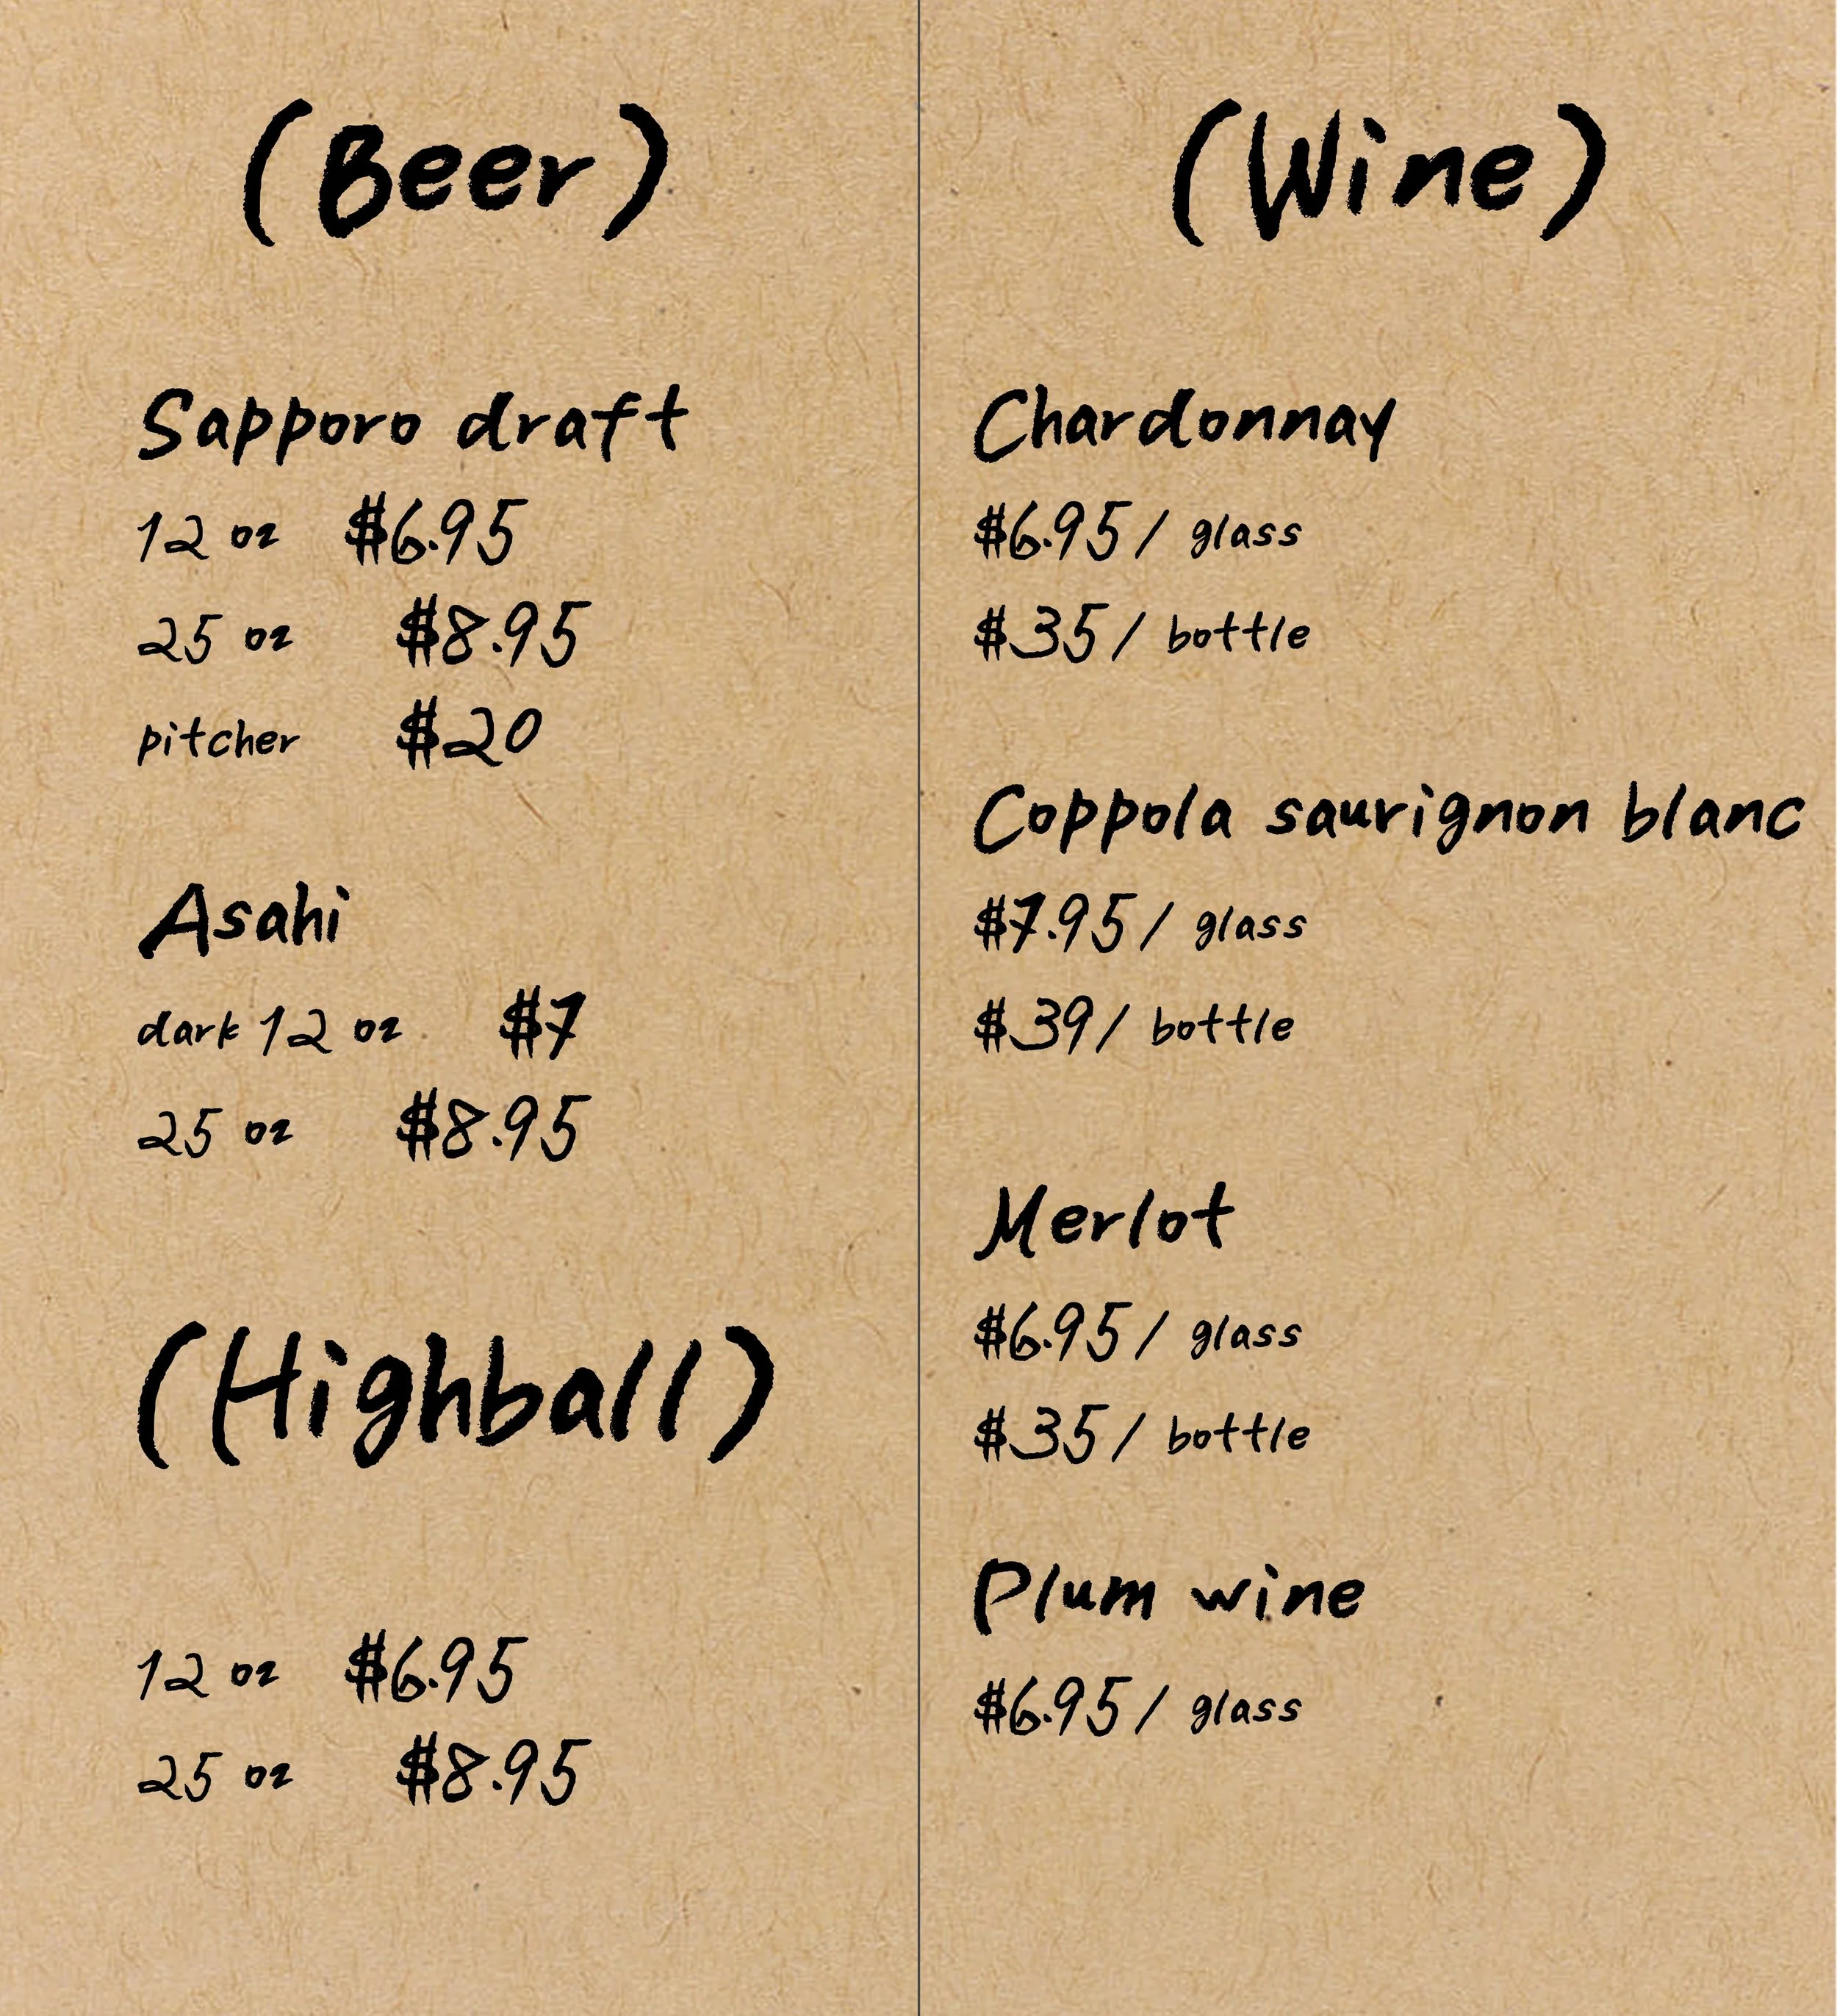 (Beer)
Sapporo draft
12 oz $6.95
25 oz $8.95
pitcher $20
Asahi
dark 12 oz $7
25 oz $8.95
(Highball)
12 oz $6.95
25 oz $8.95
(Wine)
Chardonnay
$6.95/ glass
$35/ bottle
Coppola sauvignon blanc
$7.95/ glass
$39/ bottle
Merlot
$6.95/ glass
$35/ bottle
Plum wine
$6.95/ glass